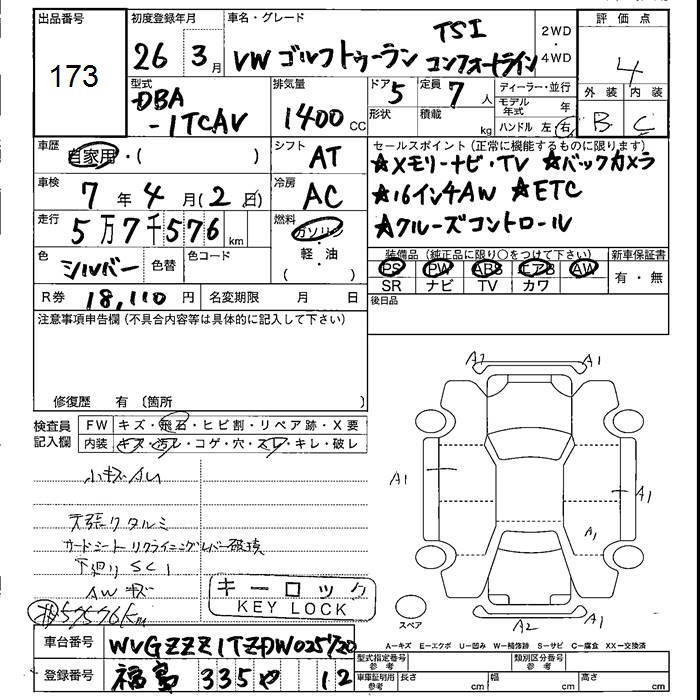 出品番号
173
初度登録年月
26 3月
車名・グレード
VW ゴルフトゥーラン TSI コンフォートライン
2WD
・
4WD
評価点
4
外装 内装
B C
型式
DBA
-1TCAV
排気量
1400 CC
ドア 5
形状
定員 7 人
積載 kg
ディーラー・並行
モデル年式 年
ハンドル 左・右
車歴
自家用・( )
シフト
AT
セールスポイント(正常に機能するものに限ります)
☆メモリーナビ・TV ☆バックカメラ
☆16インチAW ☆ETC
☆クルーズコントロール
車検
7年4月(2日)
冷房
AC
走行
5万7千576 km
燃料
ガソリン
・
軽・油
( )
色
シルバー
色替
色コード
装備品(純正品に限り○をつけて下さい)
PS PW ABS エアB AW
SR ナビ TV カワ
新車保証書
有・無
R券 18,110円
名変期限 月 日
後日品
注意事項申告欄(不具合内容等は具体的に記入して下さい)
修復歴 有〔箇所 〕
検査員
記入欄
FW キズ・飛石・ヒビ割・リペア跡・X要
内装 キズ・汚レ・コゲ・穴・スレ・キレ・破レ
小キズAU
天張りタルミ
カードシートリクライニングレバー破損
下廻りSC1
AWキズ
57576Km
キーロック
KEY LOCK
A1 A1
A1 A1
A1
A2 A1
スペア
A=キズ E=エクボ U=凹み W=補修跡 S=サビ C=腐食 XX=交換済
車台番号
WVGZZZ1TZDW025720
登録番号
福島 335 や 12
型式指定番号
参考
類別区分番号
参考
車庫証明用
参考
長さ cm
幅 cm
高さ cm